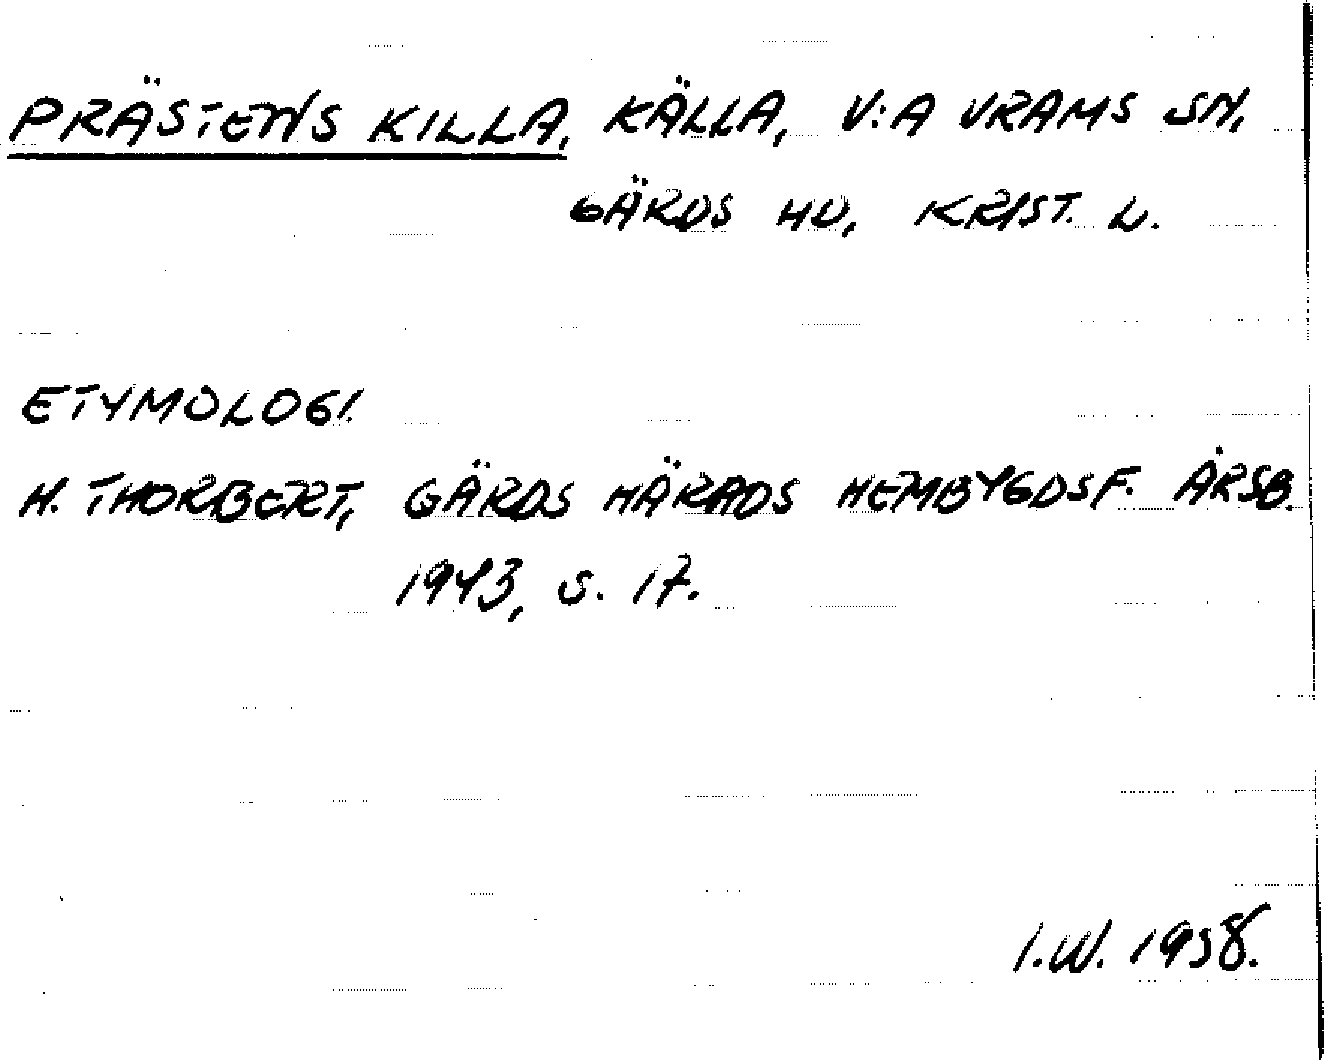 PRÄSTENS KILLA, KÄLLA, V:A VRAMS SN,
GÄRDS HD, KRIST. L.
ETYMOLOGI.
H. THORBERT, GÄRDS HÄRADS HEMBYGDSF. ÅRSB.
1943, S. 17.
I.W. 1958.